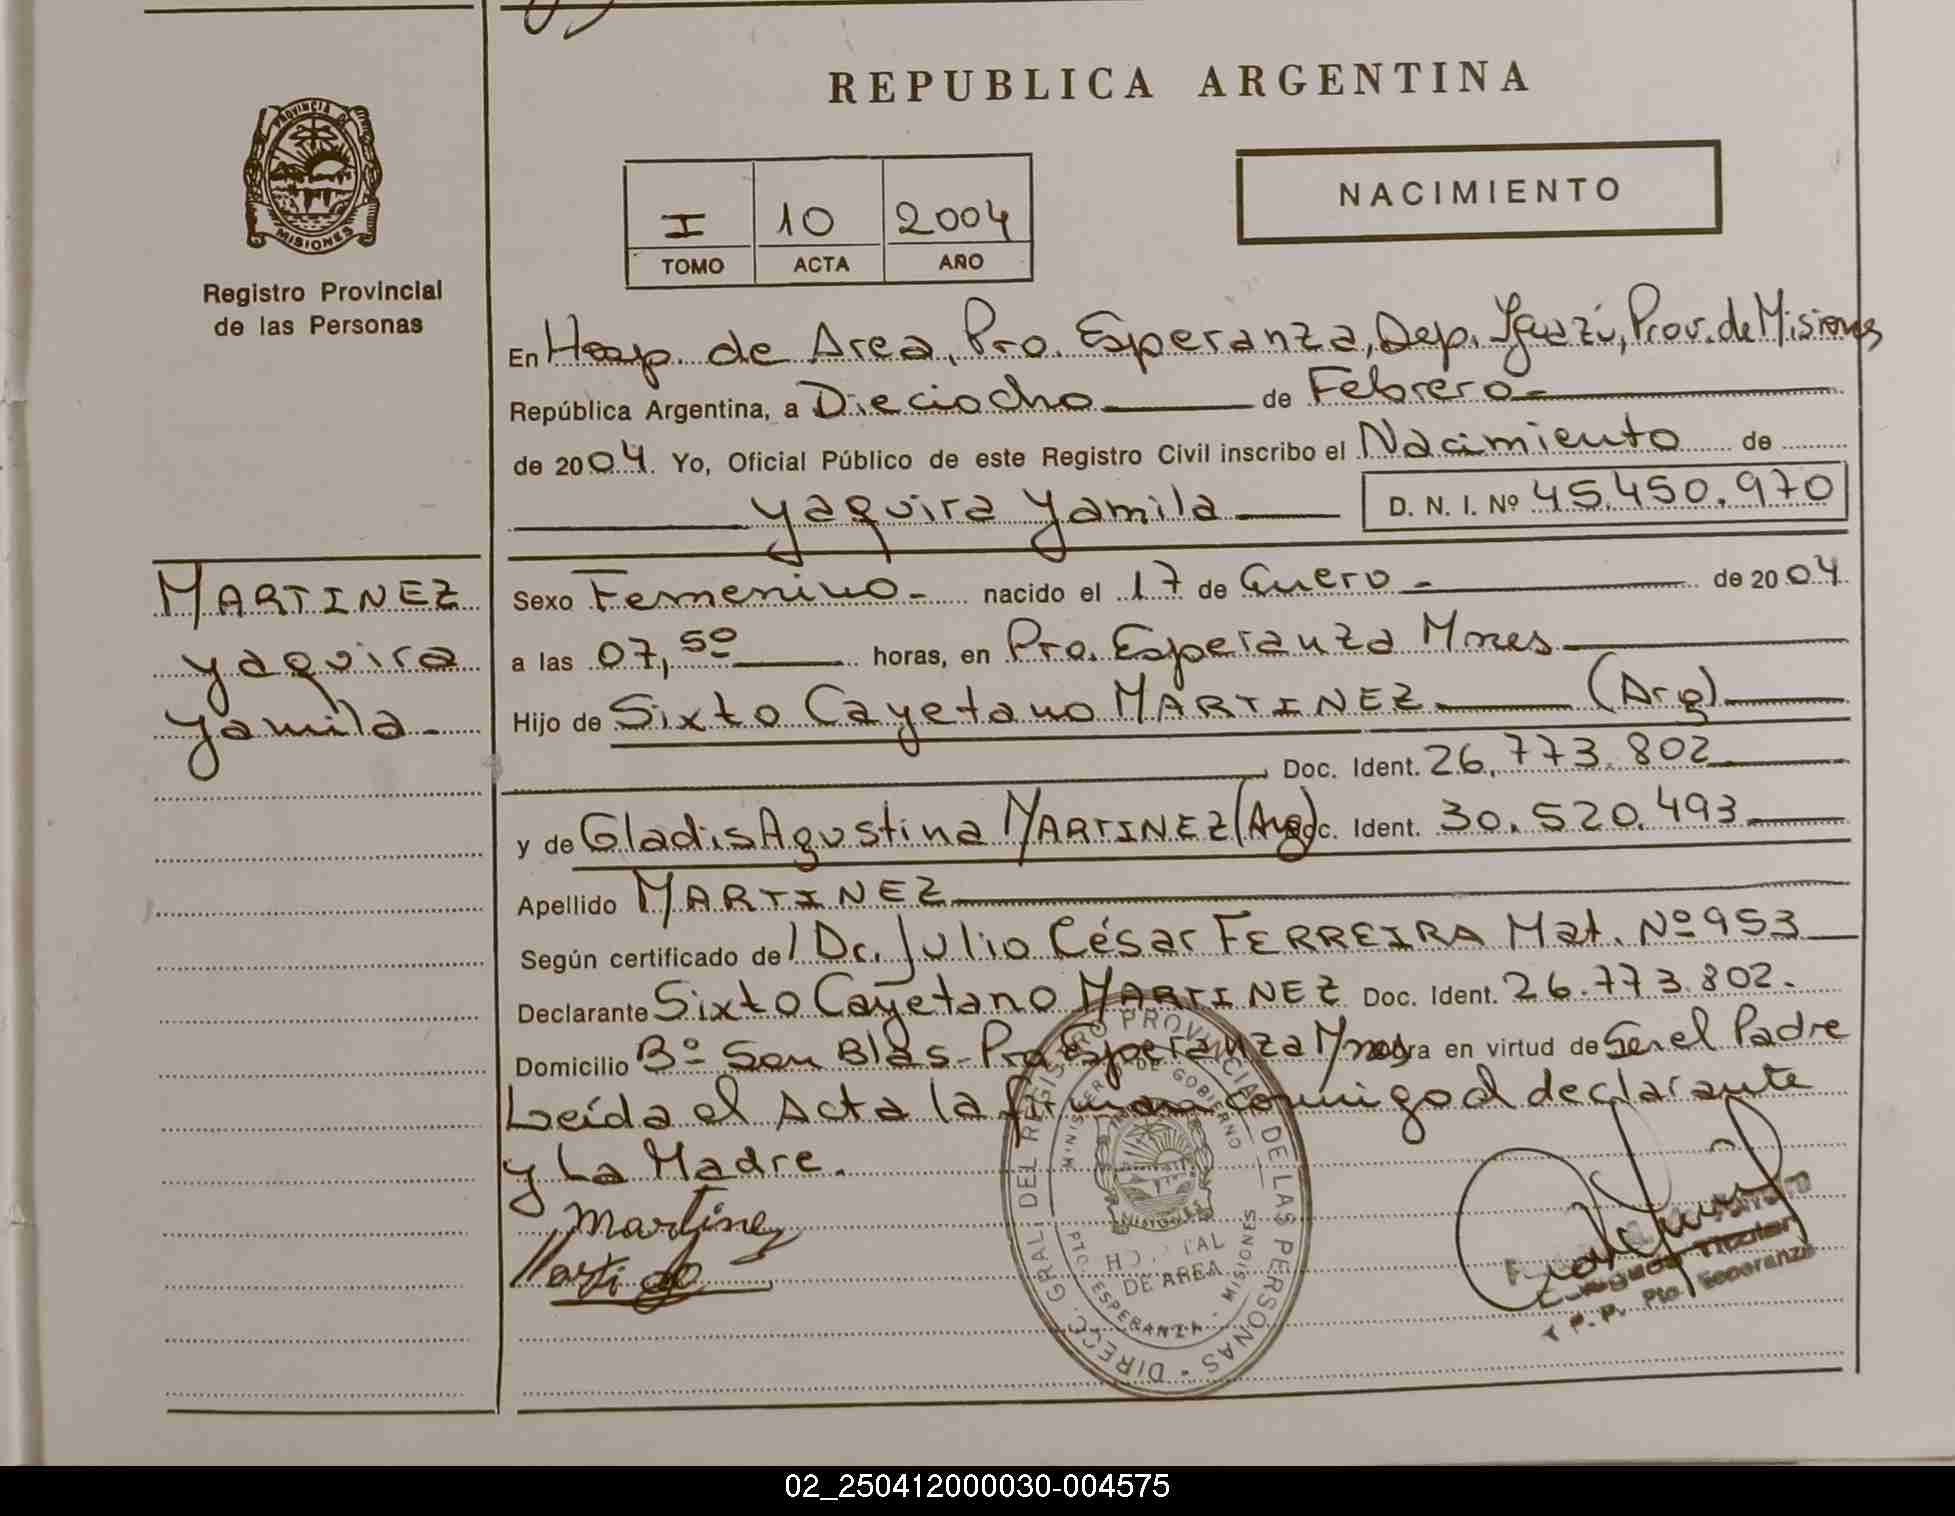 REPUBLICA ARGENTINA
PROVINCIA DE
MISIONES
Registro Provincial
de las Personas
I 10 2004
TOMO ACTA AÑO
NACIMIENTO
En Hosp. de Area, Pto. Esperanza, Dep. Iguazú, Prov. de Misiones
República Argentina, a Dieciocho de Febrero
de 2004. Yo, Oficial Público de este Registro Civil inscribo el Nacimiento de
Yaquira Yamila D. N. I. Nº 45.450.970
MARTINEZ
Yaquira
Yamila
Sexo Femenino nacido el 17 de Enero de 2004
a las 07,50 horas, en Pto. Esperanza Mnes
Hijo de Sixto Cayetano MARTINEZ (Arg)
Doc. Ident. 26.773.802
y de Gladis Agustina MARTINEZ (Arg) Doc. Ident. 30.520.493
Apellido MARTINEZ
Según certificado de Dr. Julio César FERREIRA Mat. Nº 953
Declarante Sixto Cayetano MARTINEZ Doc. Ident. 26.773.802.
Domicilio Bº San Blas - Pto Esperanza Mnes obra en virtud de Ser el Padre
Leída el Acta la firman conmigo el declarante
y La Madre.
Martinez
DIRECC. GRAL. DEL REGISTRO PROVINCIAL DE LAS PERSONAS
MINISTERIO DE GOBIERNO
MISIONES
HOSPITAL
DE AREA
PTO. ESPERANZA - MISIONES
Titular
Pto. Esperanza
02_250412000030-004575